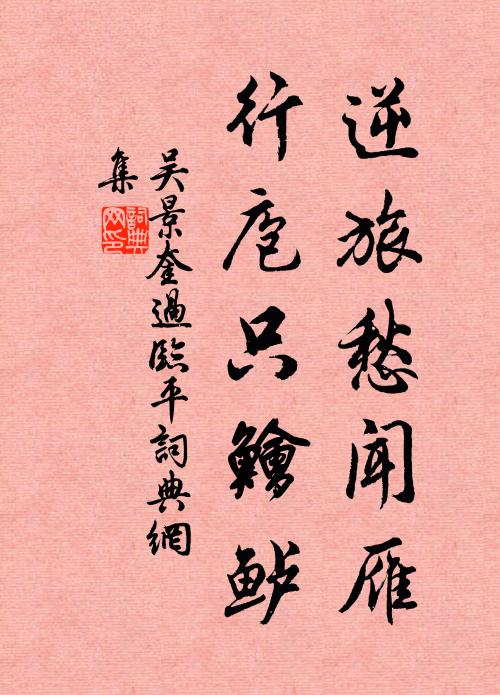 逆旅愁闻雁
行庖只鱠鲈
吴景奎過臨平詞典網
集
詞典
网印